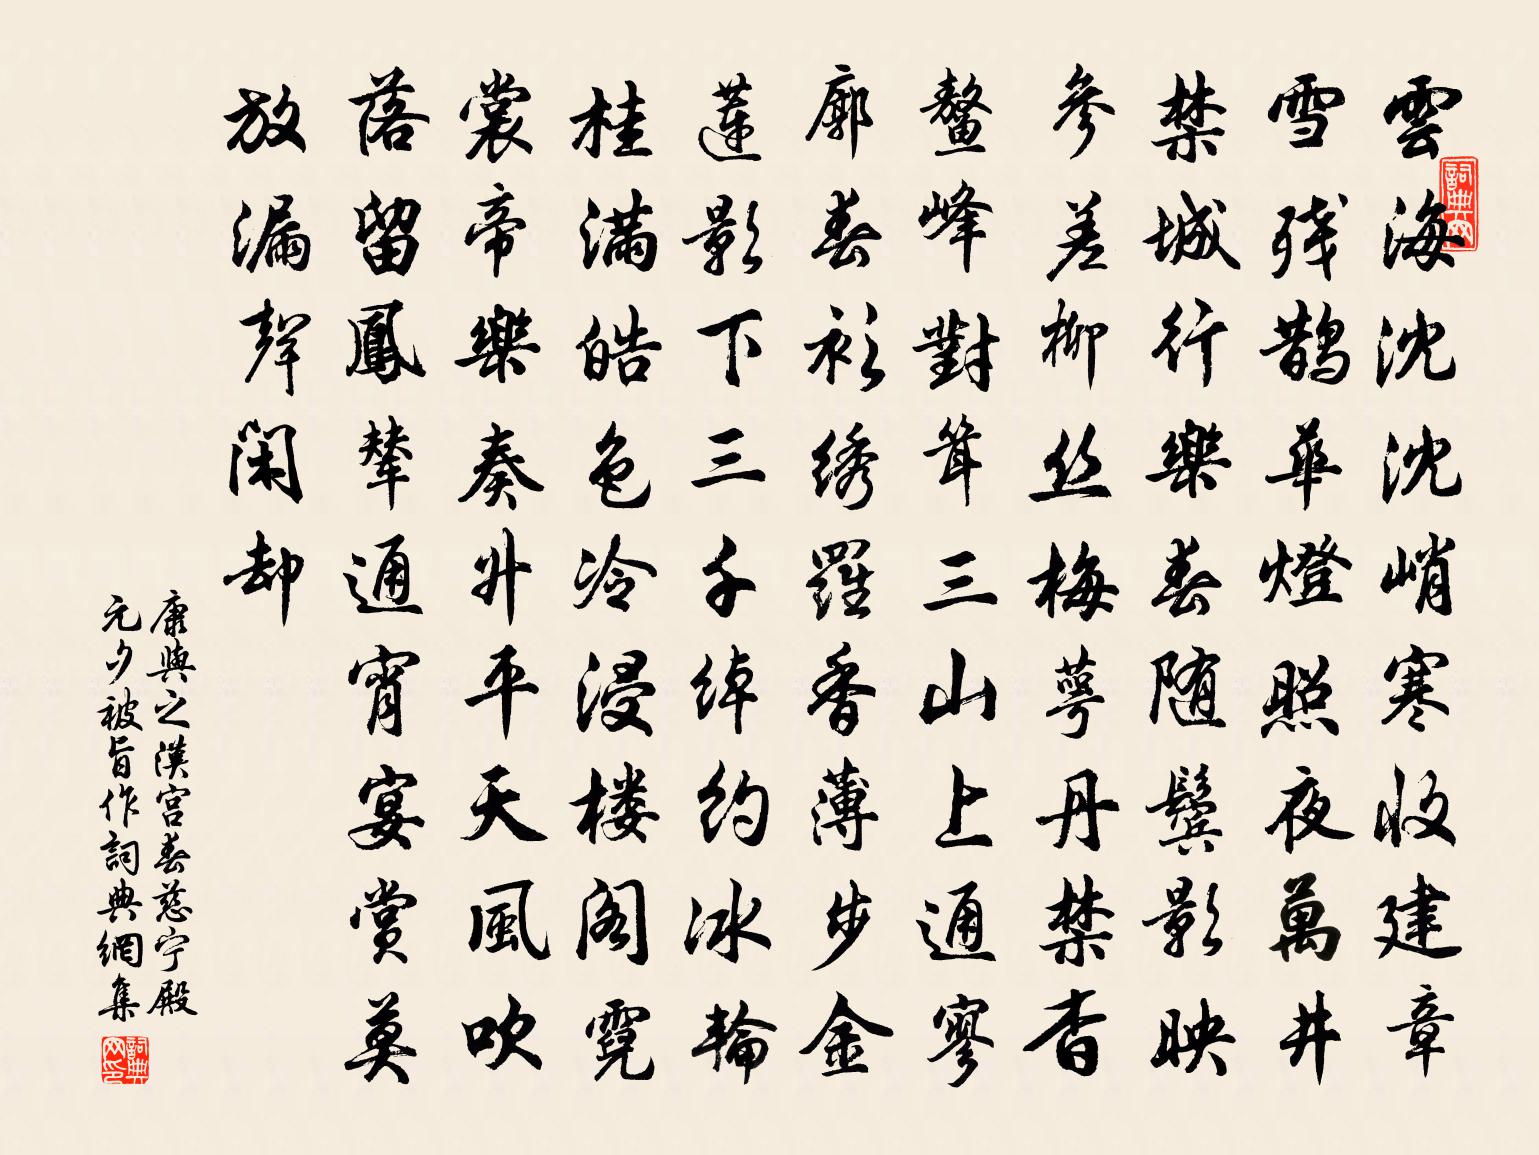 雲海沈沈峭寒收建章
雪残鹊華燈照夜萬井
禁城行樂春随鬓影映
參差柳丝梅萼丹禁杳
鳌峰對耸三山上通寥
廓春衫绣羅香薄步金
蓮影下三千绰约冰輪
桂滿皓色冷浸楼阁霓
裳帝樂奏升平天風吹
落留鳳輦通宵宴赏莫
放漏聲閑却
康與之漢宫春慈宁殿
元夕被旨作詞典網集
詞典网
詞典网印